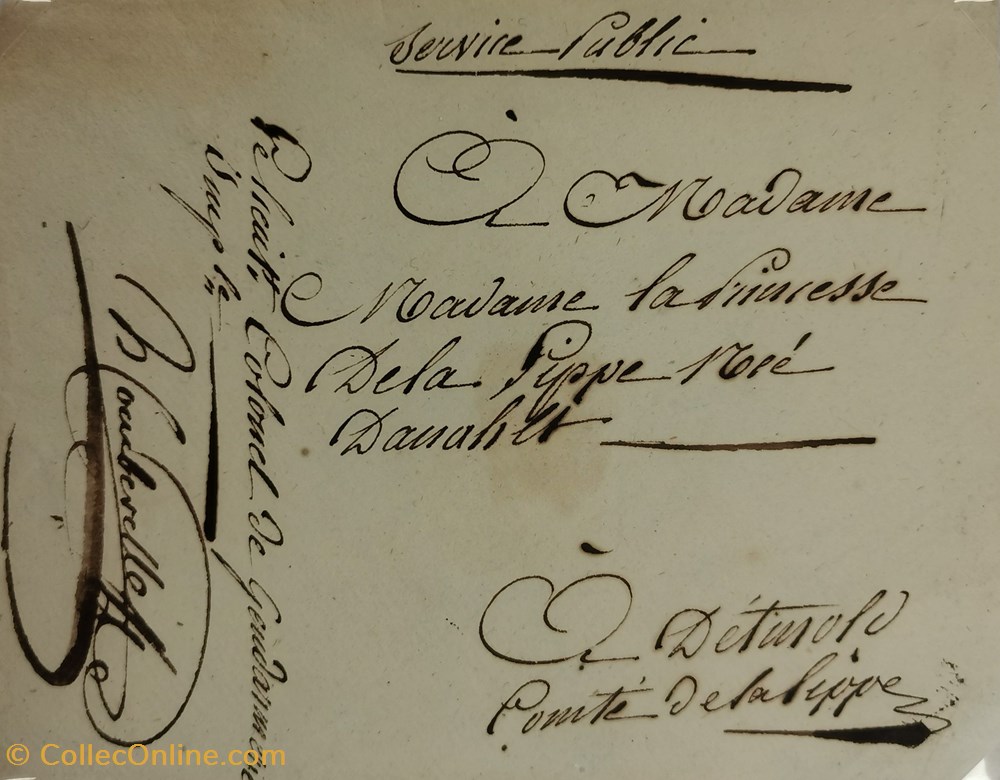 Service Public
À Madame
Madame la Princesse
De la Lippe Neé
Danahlt
À Détmold
Comté de la Lippe
Colonel de Gendarmerie
Imp.le
© CollecOnline.com